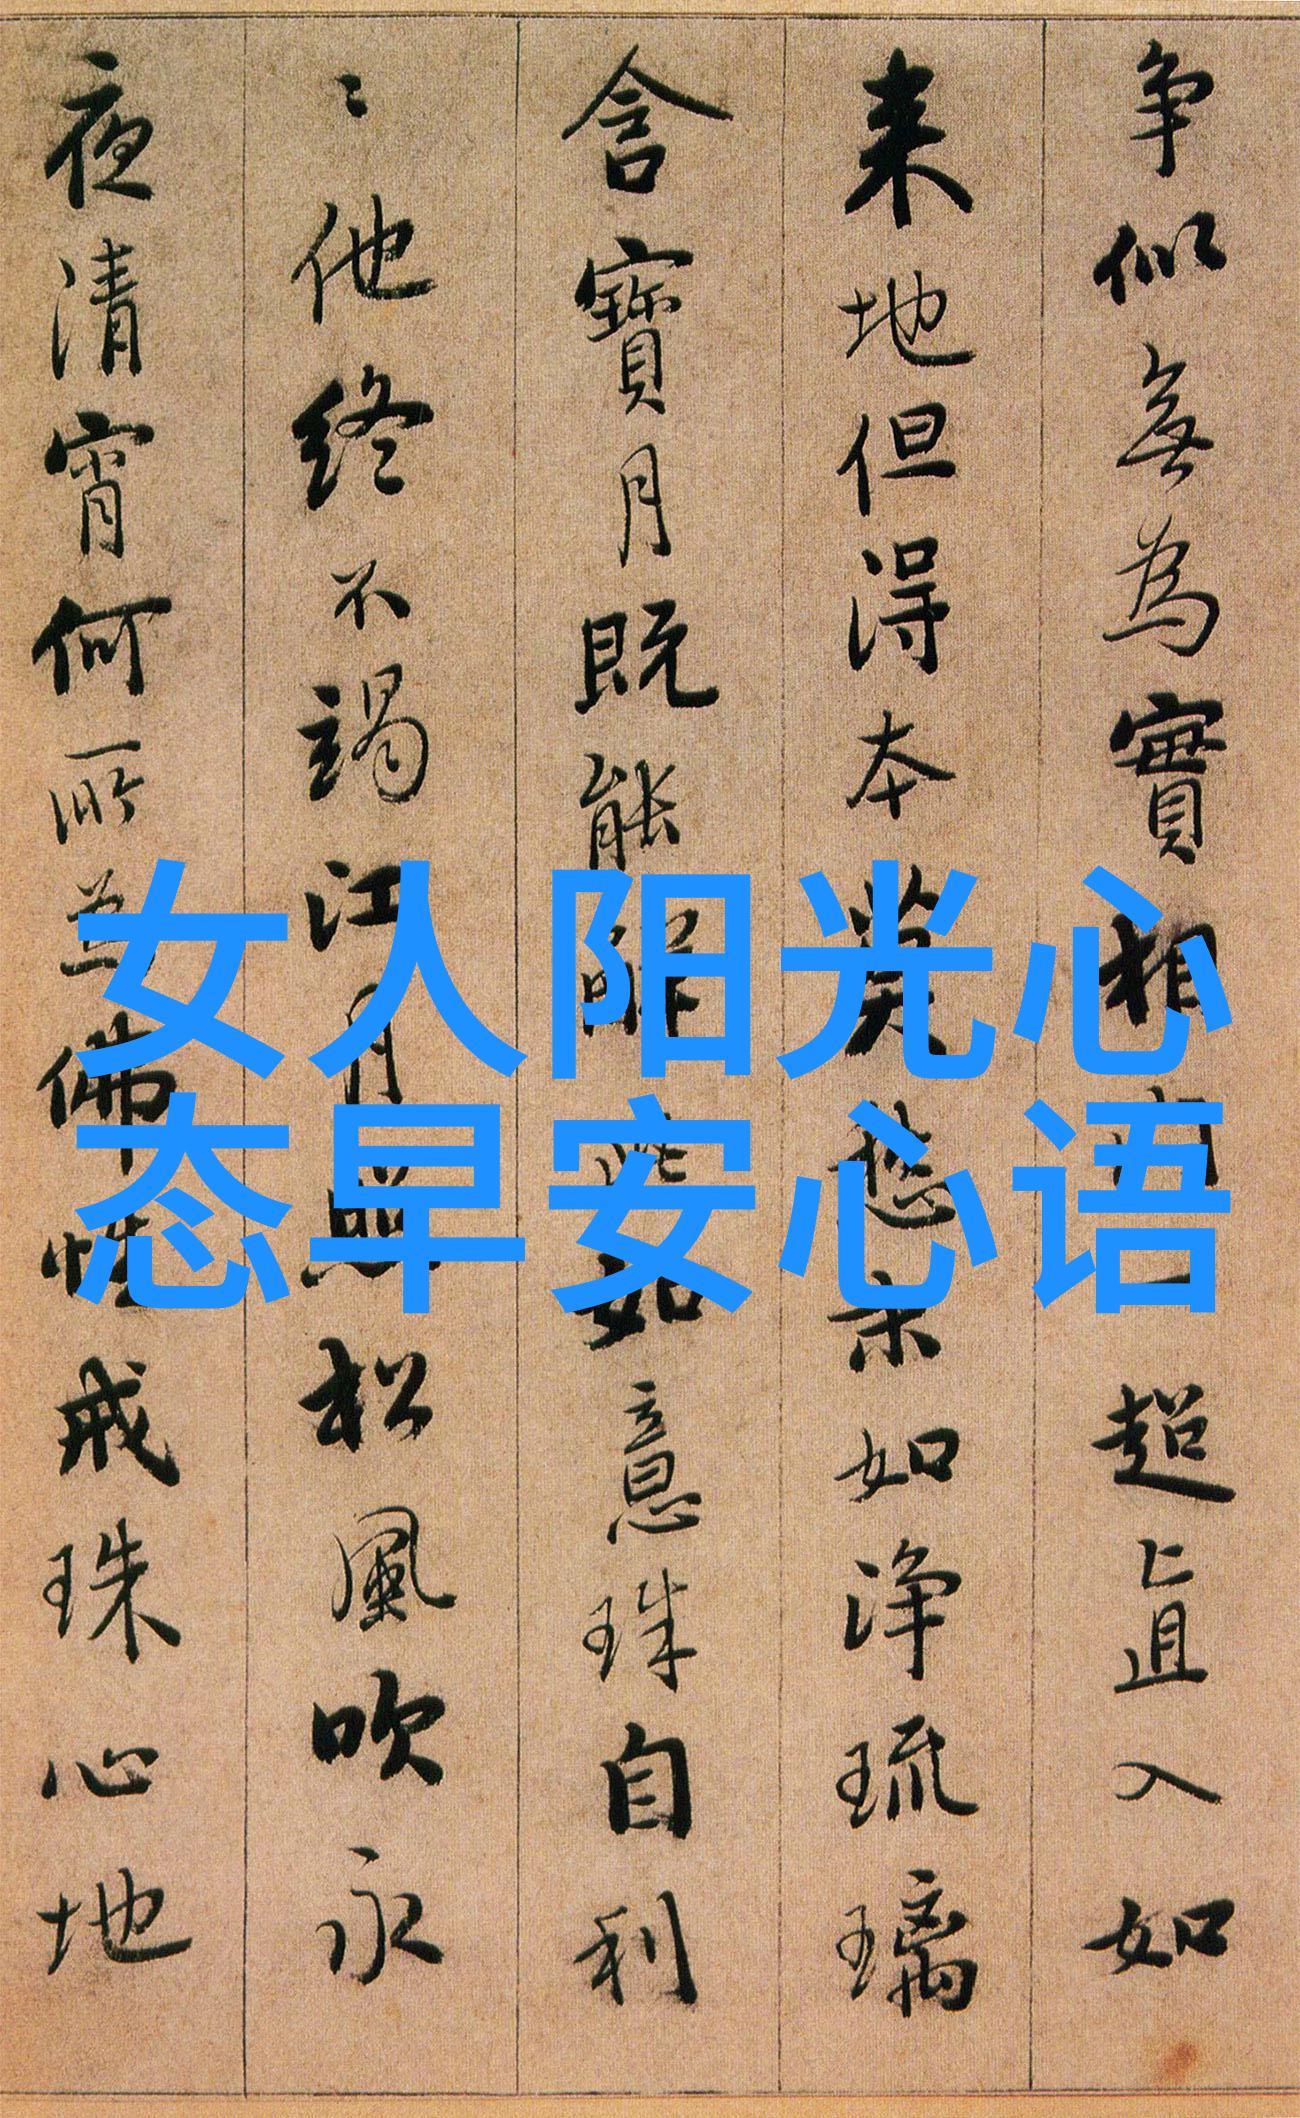 争似無為實相門一超直入如
来地但得本莫愁末如淨琉璃
含寶月既能解此如意珠自利
々他終不竭江月照松風吹永
夜清宵何所為佛性戒珠心地
女人阳光心
态早安心语